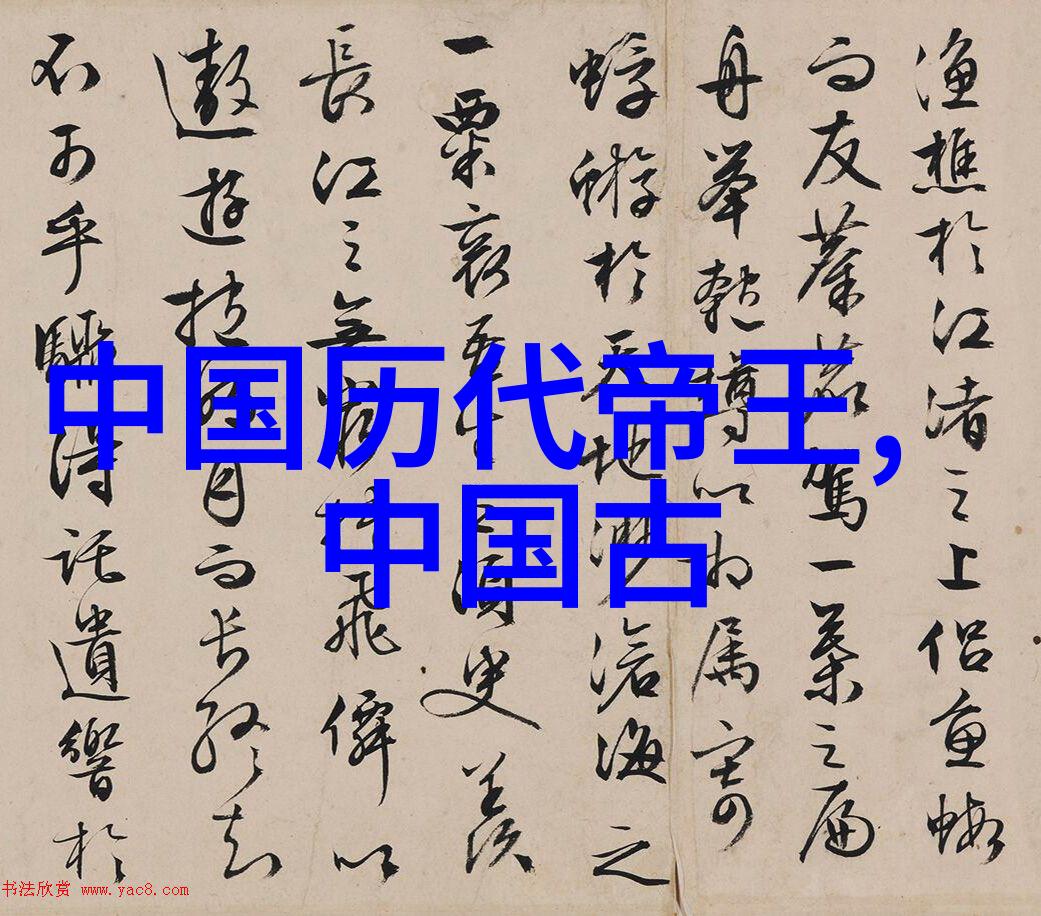 漁樵於江渚之上侣魚蝦
而友麋鹿駕一葉之扁
舟举匏樽以相属寄
蜉蝣於天地渺滄海之
一粟哀吾生之須臾羨
長江之無窮挟飛僊以
遨遊抱明月而长终知
不可乎驟得託遺響於
中国历代帝王,
中国古
书法欣赏 www.yac8.com